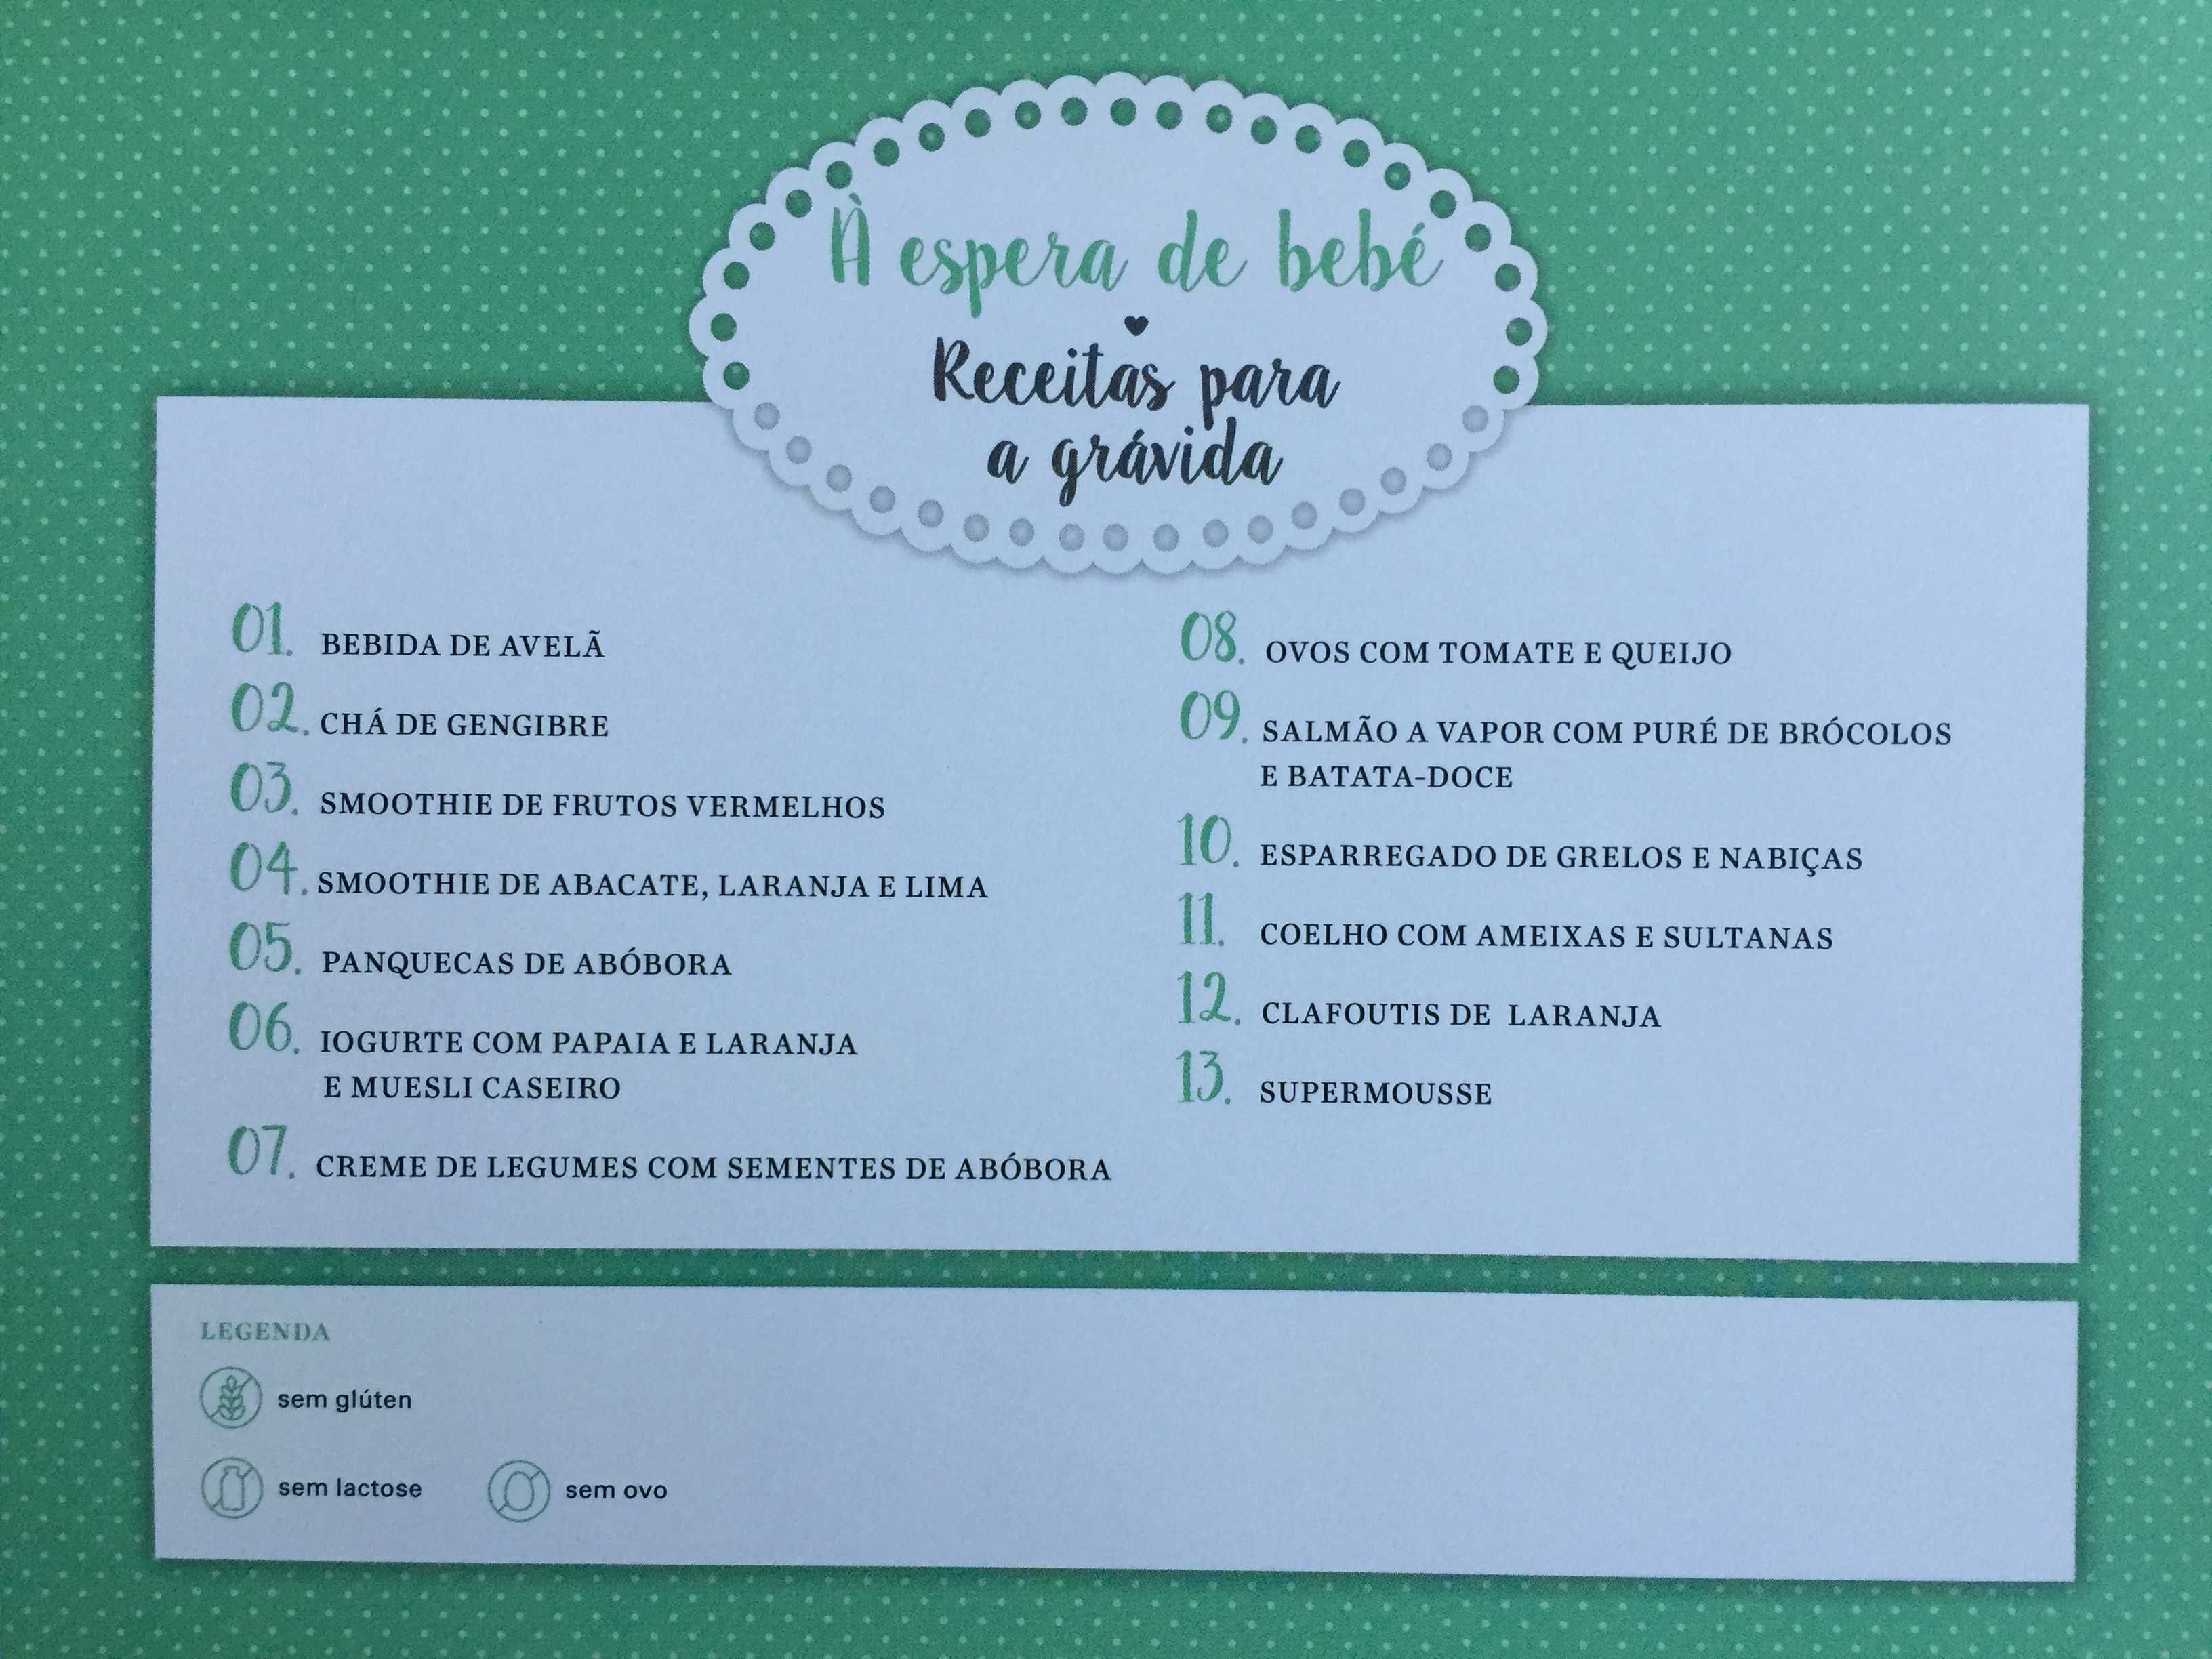 À espera de bebé
Receitas para
a grávida
01. BEBIDA DE AVELÃ
02. CHÁ DE GENGIBRE
03. SMOOTHIE DE FRUTOS VERMELHOS
04. SMOOTHIE DE ABACATE, LARANJA E LIMA
05. PANQUECAS DE ABÓBORA
06. IOGURTE COM PAPAIA E LARANJA
E MUESLI CASEIRO
07. CREME DE LEGUMES COM SEMENTES DE ABÓBORA
08. OVOS COM TOMATE E QUEIJO
09. SALMÃO A VAPOR COM PURÉ DE BRÓCOLOS
E BATATA-DOCE
10. ESPARREGADO DE GRELOS E NABIÇAS
11. COELHO COM AMEIXAS E SULTANAS
12. CLAFOUTIS DE LARANJA
13. SUPERMOUSSE
LEGENDA
sem glúten
sem lactose
sem ovo